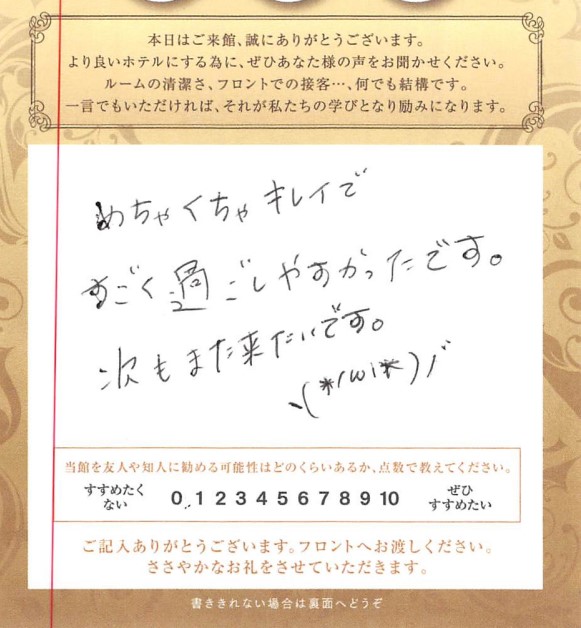 本日はご来館、誠にありがとうございます。
より良いホテルにする為に、ぜひあなた様の声をお聞かせください。
ルームの清潔さ、フロントでの接客…、何でも結構です。
一言でもいただければ、それが私たちの学びとなり励みになります。
めちゃくちゃキレイで
すごく過ごしやすかったです。
次もまた来たいです。
ヽ(*'ω'*)ノ
当館を友人や知人に勧める可能性はどのくらいあるか、点数で教えてください。
すすめたくない 0 1 2 3 4 5 6 7 8 9 10 ぜひすすめたい
ご記入ありがとうございます。フロントへお渡しください。
ささやかなお礼をさせていただきます。
書ききれない場合は裏面へどうぞ